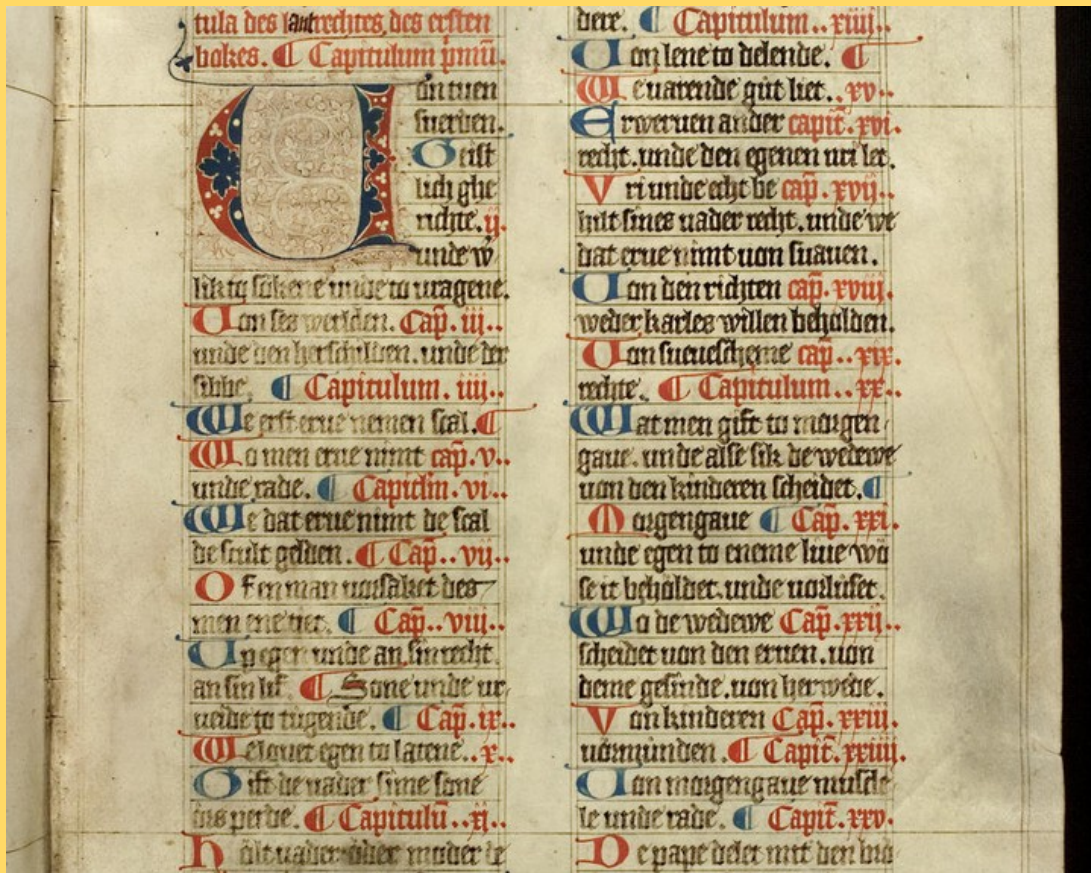 tula des lantrechtes des ersten
bokes. ¶ Capitulum pͥmū.
Uon tuen
suerden.
Geist
lich ghe
richte. ij.
unde w
lik to sokene unde to vragene.
Uon ses werlden. Cap̄. iij..
unde den herschilden. unde der
sibbe. ¶ Capitulum. iiij.
We erst erue nemen scal. ¶
Wo men erue nimt cap̄. v..
unde rade. ¶ Capitl̄m. vi..
We dat erue nimt de scal
de scult gelden. ¶ Cap̄. vij..
Of en man uorsaket des
men eme tiet. ¶ Cap̄.. viij..
Up egen unde an sin recht.
an sin lif. ¶ Sone unde ur
ueide to tugende. ¶ Cap̄. ix..
Welquet egen to latene.. x..
Gift de uader sime sone
ors perde. ¶ Capitulū.. xj..
Holt uader oder muder le
dere. ¶ Capitulum.. xiiij..
Uon lene to delende. ¶
We uarende gut liet.. xv..
Erweruen ander capit̄. xvi.
recht. unde den egenen uri let.
Vri unde echt be cap̄. xvij..
hilt sines uader recht. unde we
dat erue nimt uon suauen.
Uon den richten cap̄. xviij.
weder karles willen beholden.
Uon sueuescheme cap̄.. xix.
rechte. ¶ Capitulum.. xx..
Wat men gift to morgen
gaue. unde alse sik de wedewe
uon den kinderen scheidet. ¶
Morgengaue ¶ Cap̄. xxi.
unde egen to eneme liue wo
se it beholdet. unde uorluset.
Wo de wedewe Cap̄. xxij..
scheidet uon den eruen. uon
deme gesinde. uon herwede.
Von kinderen Cap̄. xxiij.
uormunden. ¶ Capit̄. xxiiij.
Uon morgengaue musde
le unde rade. ¶ Capit̄. xxv.
De pape delet mit den bro